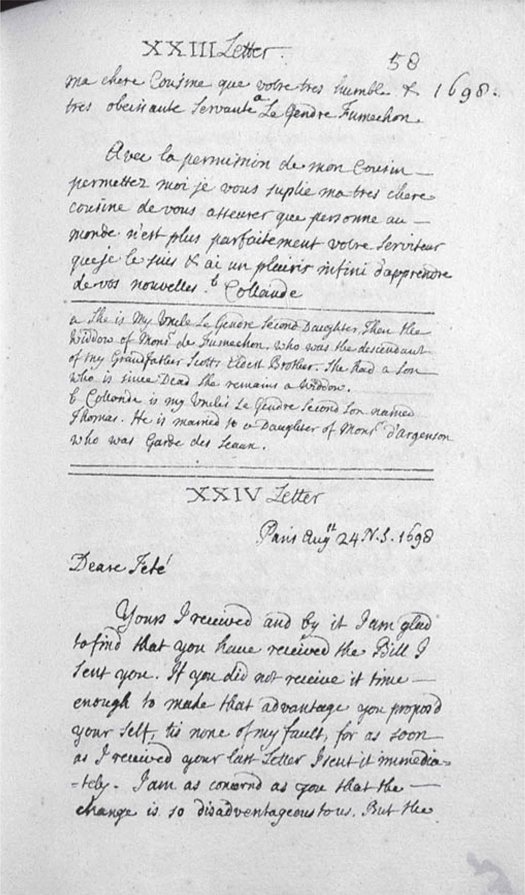 XXIII Letter.
58
ma chere Cousine que votre tres humble & 1698.
tres obeissante servante a Le Gendre Fumechon.
Avec la permission de mon Cousin —
permettez moi je vous suplie ma tres chere
cousine de vous asseurer que personne au —
monde n'est plus parfaitement votre serviteur
que je le suis & ai un plaisir infini d'apprendre
de vos nouvelles. b Collande
a She is My Unkle Le Gendre Second Daughter, Then the
Widdow of Monsr de Fumechon, who was the descendant
of my Grandfather Scotts Eldest Brother. She had a Son
who is since Dead she remains a Widdow.
b Collande is my Unkles Le Gendre Second Son named
Thomas. He is married to a Daughter of Monsr d'Argenson
who was Garde des Seaux.
XXIV Letter
Paris Augst 24 N.S. 1698
Deare Teté
Yours I received and by it I am glad
to find that you have received the Bill I
sent you. If you did not receive it time —
enough to make that advantage you propos'd
your self, tis none of my fault, for as soon
as I received your last Letter I sent it immedia=
=tely. I am as concernd as you that the —
change is so disadvantageous to us. But the